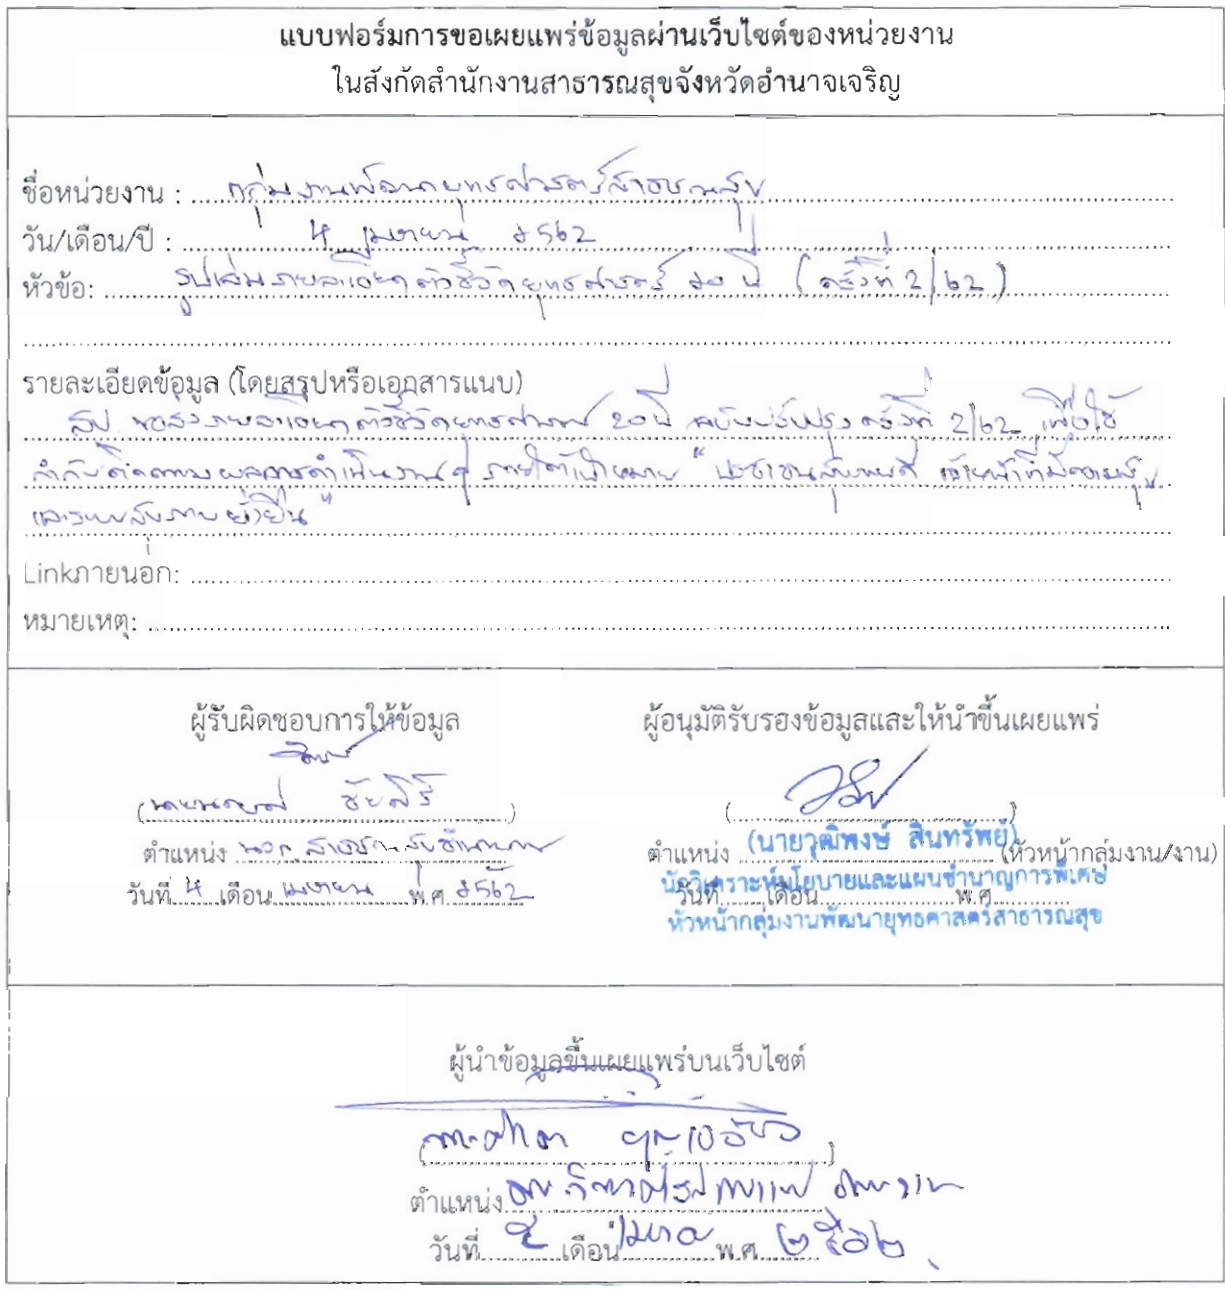 แบบฟอร์มการขอเผยแพร่ข้อมูลผ่านเว็บไซต์ของหน่วยงาน
ในสังกัดสำนักงานสาธารณสุขจังหวัดอำนาจเจริญ
ชื่อหน่วยงาน : กลุ่มงานพัฒนายุทธศาสตร์สาธารณสุข
วัน/เดือน/ปี : 4 เมษายน 2562
หัวข้อ: รูปเล่มรายละเอียดตัวชี้วัดยุทธศาสตร์ 20 ปี (ครั้งที่ 2/62)
รายละเอียดข้อมูล (โดยสรุปหรือเอกสารแนบ)
ขอส่งรายละเอียดตัวชี้วัดยุทธศาสตร์ 20 ปี ฉบับปรับปรุง ครั้งที่ 2/62 เพื่อใช้
กำกับติดตามผลการดำเนินงานฯ ภายใต้เป้าหมาย "ประชาชนสุขภาพดี เจ้าหน้าที่มีความสุข
และระบบสุขภาพยั่งยืน"
Linkภายนอก:
หมายเหตุ:
ผู้รับผิดชอบการให้ข้อมูล
( ชัยสิริ )
ตำแหน่ง สาธารณสุขชำนาญการ
วันที่ 4 เดือน เมษายน พ.ศ. 2562
ผู้อนุมัติรับรองข้อมูลและให้นำขึ้นเผยแพร่
ตำแหน่ง (นายวุฒิพงษ์ สินทรัพย์) (หัวหน้ากลุ่มงาน/งาน)
นักวิเคราะห์นโยบายและแผนชำนาญการพิเศษ
วันที่ เดือน พ.ศ.
หัวหน้ากลุ่มงานพัฒนายุทธศาสตร์สาธารณสุข
ผู้นำข้อมูลขึ้นเผยแพร่บนเว็บไซต์
ตำแหน่ง
วันที่ ๕ เดือน พ.ศ. ๒๕๖๒